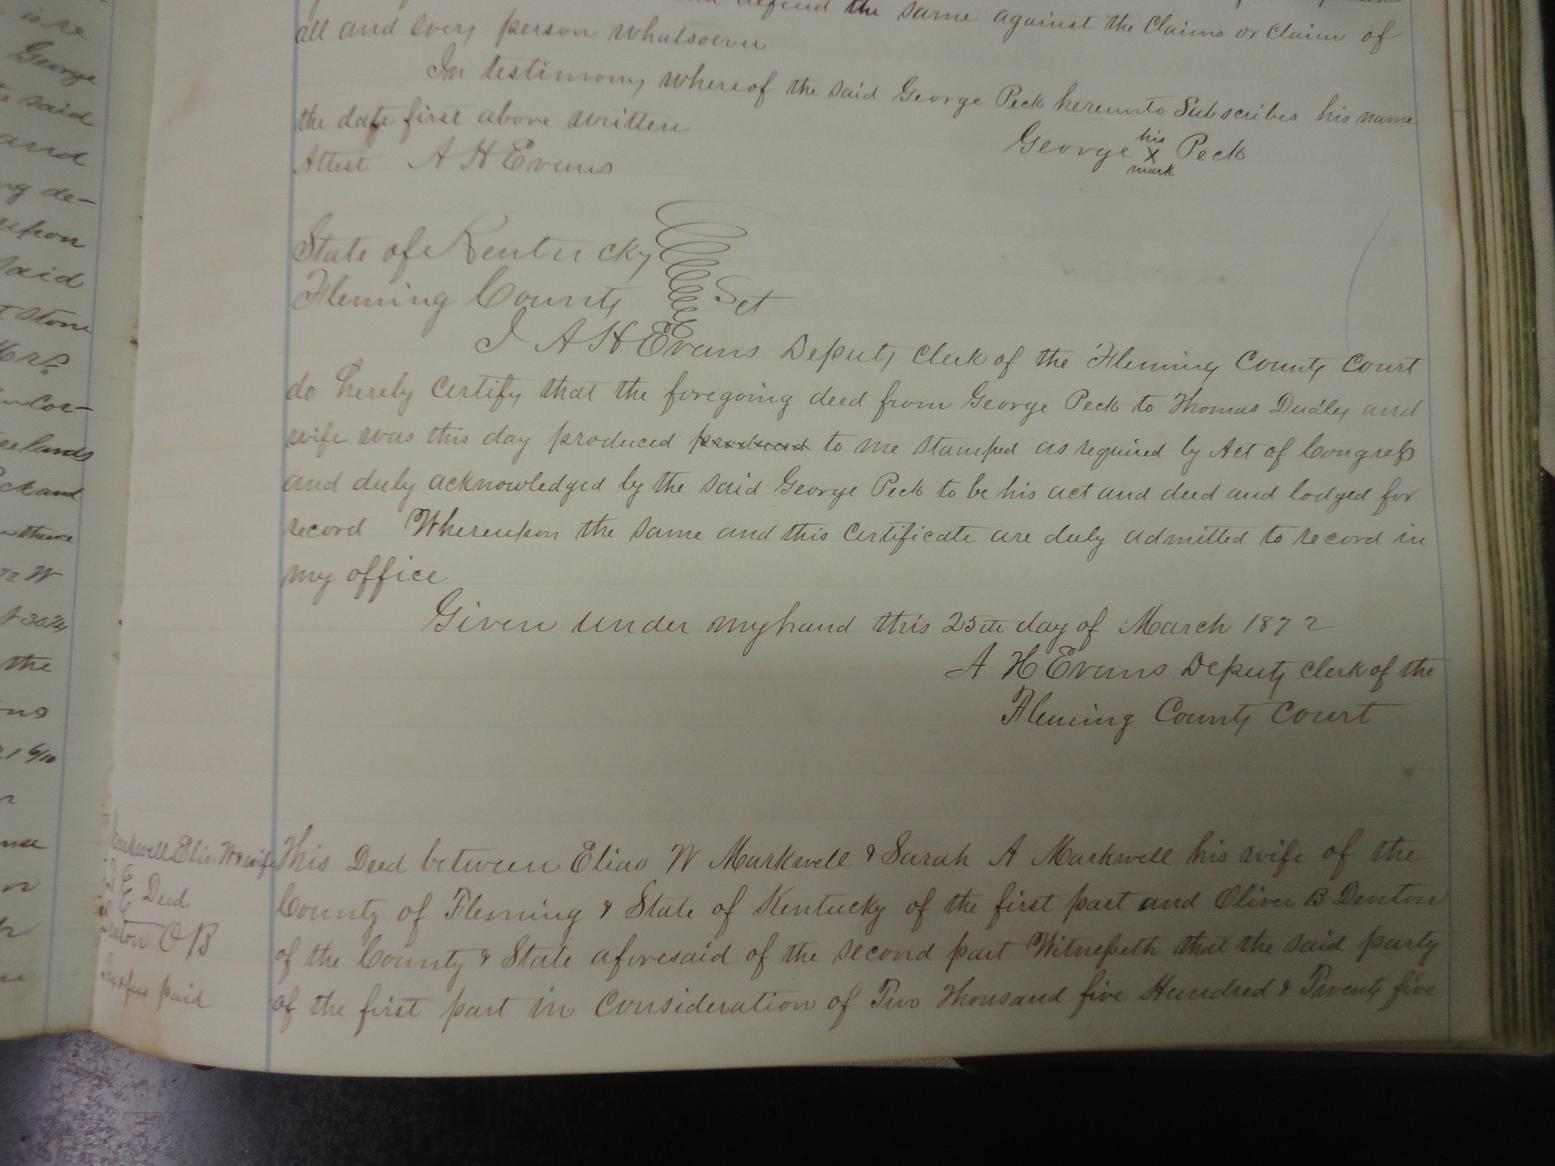 defend the same against the Claims or Claim of
all and every person whatsoever
In testimony whereof the said George Peck hereunto Subscribes his name
the date first above written
George his X mark Peck
Attest A H Evans
State of Kentucky
Fleming County Sct
I A H Evans Deputy Clerk of the Fleming County Court
do hereby certify that the foregoing deed from George Peck to Thomas Dudley and
wife was this day produced produced to me stamped as required by Act of Congress
and duly acknowledged by the said George Peck to be his act and deed and lodged for
record Whereupon the same and this certificate are duly admitted to record in
my office
Given under my hand this 25th day of March 1872
A H Evans Deputy Clerk of the
Fleming County Court
Markwell Elias W & wife
Deed
Denton O B
paid
This Deed between Elias W Markwell & Sarah A Markwell his wife of the
County of Fleming & State of Kentucky of the first part and Oliver B Denton
of the County & State aforesaid of the second part Witnesseth that the said party
of the first part in Consideration of Two Thousand five Hundred & Twenty five
is re
George
said
and
ng de-
upon
said
Stone
lands
and
72 W
the